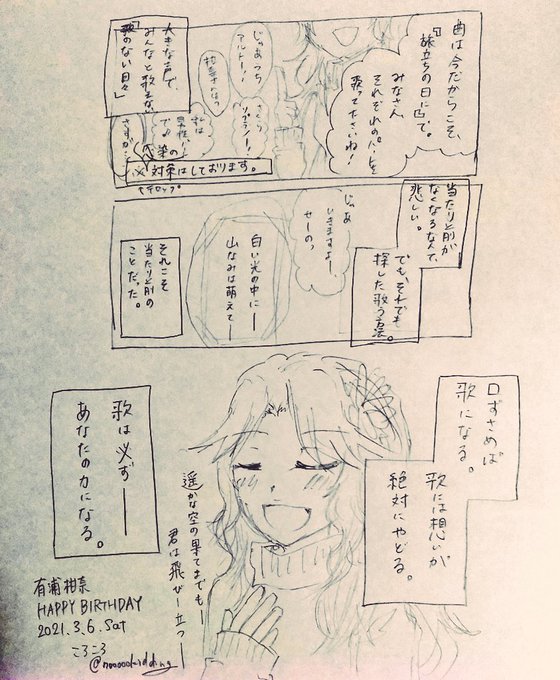 曲は今だからこそ、
『旅立ちの日に』で。
みなさん
それぞれのパートを
歌って下さいね！
じゃあっち
アルトー！
大きな声で、
みんなと歌えない、
『歌のない日々』
※
対策はしております。
テロップ
当たり前が
なくなるなんて、
悲しい。
でも、それでも
探した歌う方法。
じゃあ
いきますよー
せーのっ
白い光の中にー
山なみは萌えてー
それこそ
当たり前の
ことだった。
口ずさめば
歌になる。
歌には想いが
絶対にやどる。
遥かな空の果てまでもー
君は飛びー立つー
歌は必ず――
あなたの力になる。
有浦柑奈
HAPPY BIRTHDAY
2021.3.6.Sat
ころころ